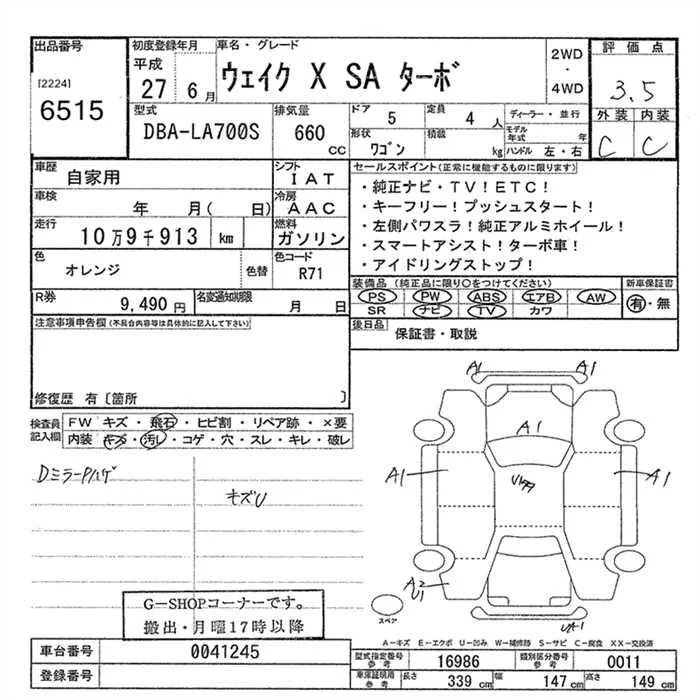 出品番号
[2224]
6515
初度登録年月
平成
27 6月
車名・グレード
ウェイク X SA ターボ
2WD
・
4WD
評価点
3.5
外装 内装
C C
型式
DBA-LA700S
排気量
660 cc
ドア 5
定員 4人
形状 ワゴン
積載 kg
ディーラー・並行
モデル年式 年
ハンドル 左・右
車歴
自家用
シフト
IAT
セールスポイント(正常に機能するものに限ります)
・純正ナビ・TV!ETC!
・キーフリー!プッシュスタート!
・左側パワスラ!純正アルミホイール!
・スマートアシスト!ターボ車!
・アイドリングストップ!
車検
年 月( 日)
冷房
AAC
走行
10万9千913 km
燃料
ガソリン
色
オレンジ
色替
色コード
R71
装備品 (純正品に限り○をつけてください)
PS PW ABS エアB AW
SR ナビ TV カワ
新車保証書
有・無
R券
9,490円
名変通知期限
月 日
後日品
保証書・取説
注意事項申告欄(不具合内容等は具体的に記入して下さい)
修復歴 有〔箇所 〕
検査員記入欄
FW キズ・飛石・ヒビ割・リペア跡・×要
内装 キズ・汚し・コゲ・穴・スレ・キレ・破レ
DミラーPハゲ
キズU
A1 A1
A1
A1 A1
A2
U1
スペア
G-SHOPコーナーです。
搬出・月曜17時以降
A-キズ E-エクボ U-凹み W-補修跡 S-サビ C-腐食 XX-交換済
車台番号
0041245
登録番号
型式指定番号 参考
16986
類別区分番号 参考
0011
車庫証明用 参考
長さ 339 cm 幅 147 cm 高さ 149 cm